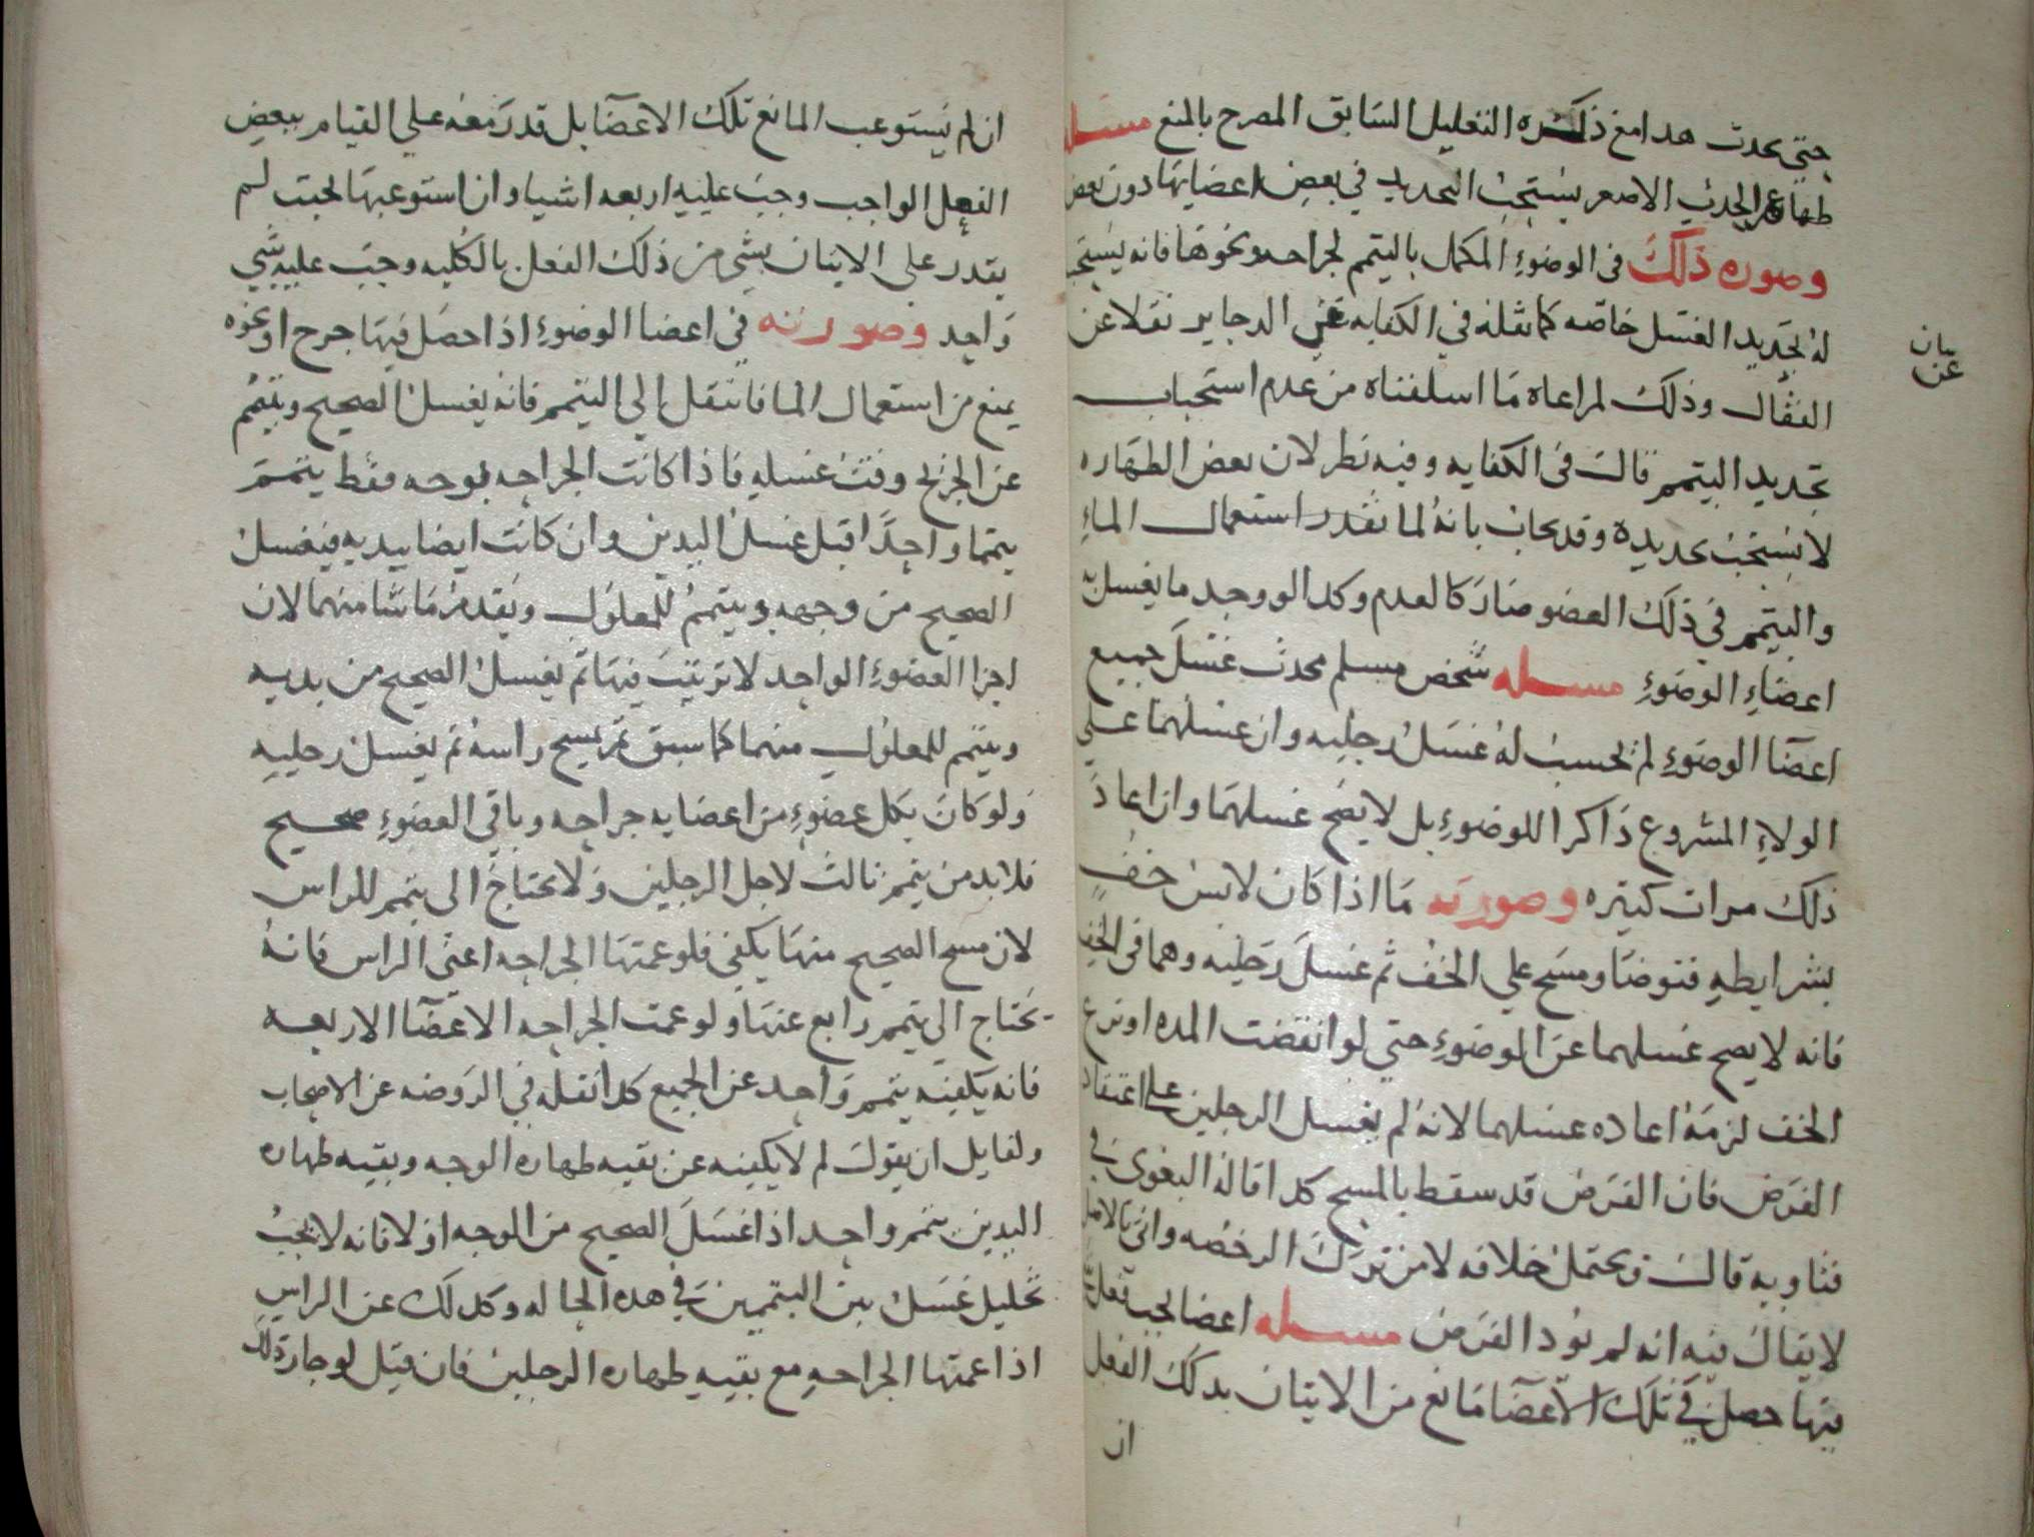 حتى يحدث هدا مع ذكره التعليل السابق المصرح بالمنع مسله
طهاره عن الحدث الاصغر يستحب التجديد في بعض اعضايها دون بعض
وصوره ذلك في الوضوء المكمل بالتيمم لجراحه ونحوها فانه يستحب
له تجديد الغسل خاصه كما نقله في الكفايه عن الدجاير نقلا عن
بيان
عن
القفال وذلك لمراعاه ما اسلفناه من عدم استحباب
تجديد التيمم قال في الكفايه وفيه نظر لان بعض الطهاره
لا يستحب تجديده وقد يجاب بانه لما تعذر استعمال الماء
والتيمم في ذلك العضو صار كالعدم وكدا لو وجد ما يغسل به
اعضاء الوضوء مسله شخص مسلم محدث غسل جميع
اعضا الوضوء لم يحسب له غسل رجليه وان غسلهما على
الولاء المشروع ذاكرا للوضوء بل لا يصح غسلهما وان اعاد
ذلك مرات كثيره وصورته ما اذا كان لابس خف
بشرايطه فتوضا ومسح على الخف ثم غسل رجليه وهما في الخف
فانه لا يصح غسلهما عن الوضوء حتى لو انقضت المده او نزع
الخف لزمه اعاده غسلهما لانه لم يغسل الرجلين على اعتقاد
الفرض فان الفرض قد سقط بالمسح كدا قاله البغوي في
فتاويه قال ويحتمل خلافه لان من ترك الرخصه واتى بالاصل
لا يقال فيه انه لم يؤد الفرض مسله اعضا يجب فعل
فيها حصل في تلك الاعضا مانع من الاتيان بدلك الفعل
ان
ان لم يستوعب المانع تلك الاعضا بل قدر معه على القيام ببعض
الفعل الواجب وجب عليه اربعه اشيا وان استوعبها بحيث لم
يقدر على الاتيان بشي من ذلك الفعل بالكليه وجب عليه شي
واحد وصورته في اعضا الوضوء اذا حصل فيها جرح او نحوه
يمنع من استعمال الما فانتقل الى التيمم فانه يغسل الصحيح ويتيمم
عن الجريح وقت غسله فاذا كانت الجراحه بوجهه فقط يتيمم
تيمما واحدا قبل غسل اليدين وان كانت ايضا بيديه فيغسل
الصحيح من وجهه ويتيمم للمعلول ويقدم ما شا منهما لان
اجزا العضوء الواحد لا ترتيب فيها ثم يغسل الصحيح من يديه
ويتيمم للمعلول منهما كما سبق ثم يمسح راسه ثم يغسل رجليه
ولو كان بكل عضوء من اعضايه جراحه وباقي العضوء صحيح
فلا بد من تيمم ثالث لاجل الرجلين ولا يحتاج الى تيمم للراس
لان مسح الصحيح منها يكفي فلو عمتها الجراحه اعني الراس فانه
يحتاج الى تيمم رابع عنها ولو عمت الجراحه الاعضا الاربعه
فانه يكفيه تيمم واحد عن الجميع كدا نقله في الروضه عن الاصحاب
ولقايل ان يقول لم لا يكفيه عن بقيه طهاره الوجه وبقيه طهاره
اليدين تيمم واحد اذا غسل الصحيح من الوجه اولا فانه لا يجب
تخليل غسل بين التيممين في هده الحاله وكدلك عن الراس
اذا عمتها الجراحه مع بقيه طهاره الرجلين فان قيل لو جاز ذلك